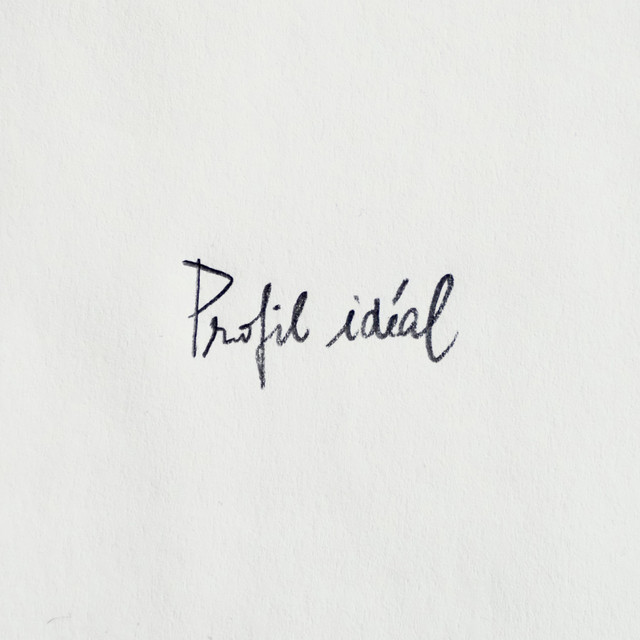 Profil idéal